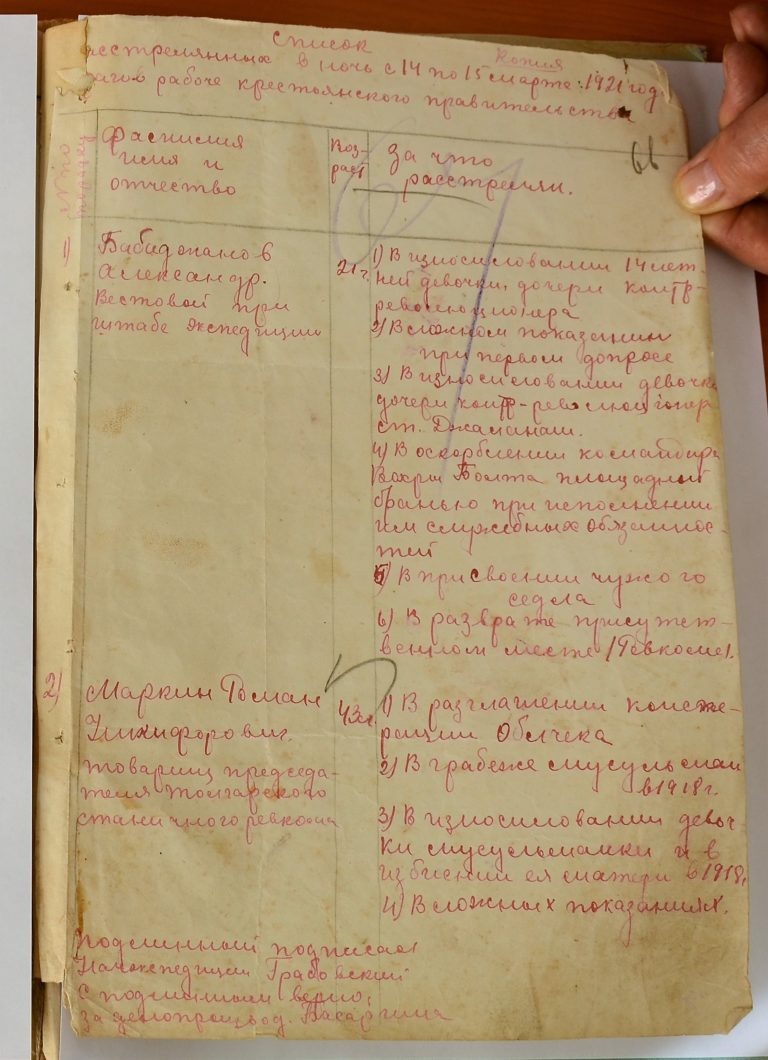 Список
Копия
расстрелянных в ночь с 14 по 15 марте. 1921 год.
врагов рабоче крестьянского правительства
66
Фасмилия
имя и
отчество
Воз-
раст
За что
расстрелян.
1) Бабидопанов
Александр.
Вестовой при
штабе экспедиции
21 г.
1) В износиловании 14 лет-
ней девочки, дочери контр-
революционера
2) В ложном показании
при первом допросе
3) В износиловании девочки
дочери контр-революционер
ст. Джаланаш.
4) В оскорблении командира
Вохры Болта площадной
бранью при исполнении
им служебных обязаннос-
тей
5) В присвоении чужого
седла
6) В разврате присутст-
венном месте /Ревкоме/.
2) Маркин Роман
Никифорович.
товарищ председа-
теля Талгарского
станичного ревкома
43 г.
1) В разглашении
Облчека
2) В грабеже мусульман
в 1918 г.
3) В износиловании девоч
ки мусульманки и в
избиении ея матери в 1918 г.
4) В ложных показаниях.
Подлинный подписал
Начэкспедиции Грабовский
С подлинным верно,
за делопроизвод. Басаргина